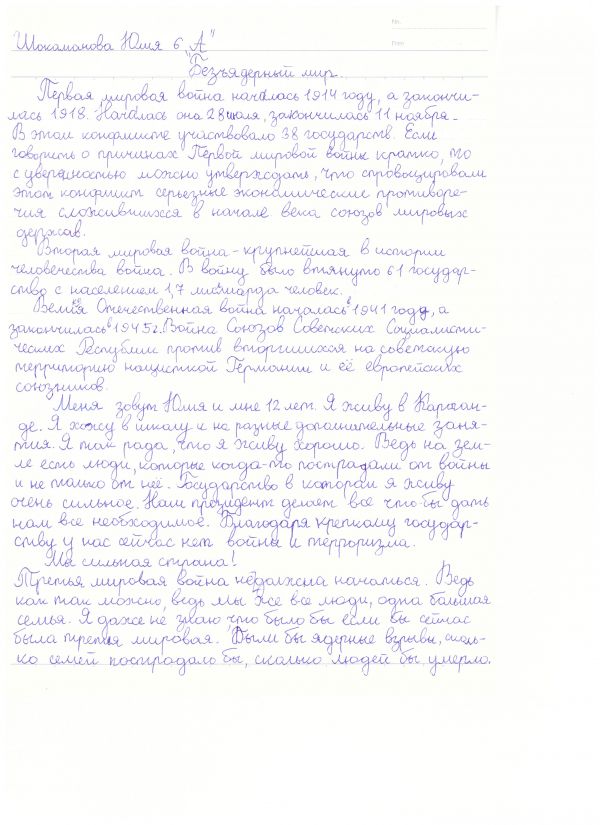 No.
Date
Шокаманова Юлия 6 "А"
"Безъядерный мир.
Первая мировая война началась 1914 году, а закончи-
лась 1918. Началась она 28 июля, закончилась 11 ноября.
В этом конфликте участвовало 38 государств. Если
говорить о причинах Первой мировой войны кратко, то
с уверенностью можно утверждать, что спровоцировали
этот конфликт серьезные экономические противоре-
чия сложившихся в начале века союзов мировых
держав.
Вторая мировая война - крупнейшая в истории
человечества война. В войну было втянуто 61 государ-
ство с населением 1,7 миллиарда человек.
Великая Отечественная война началась в 1941 году, а
закончилась в 1945г. Война Союзов Советских Социалисти-
ческих Республик против вторгшихся на советскую
территорию нацисткой Германии и её европейских
союзников.
Меня зовут Юлия и мне 12 лет. Я живу в Караган-
де. Я хожу в школу и на разные дополнительные заня-
тия. Я так рада, что я живу хорошо. Ведь на зем-
ле есть люди, которые когда-то пострадали от войны
и не только от неё. Государство в котором я живу
очень сильное. Наш президент делает все что бы дать
нам все необходимое. Благодаря крепкому государ-
ству у нас сейчас нет войны и терроризма.
Мы сильная страна!
Третья мировая война недолжна начаться. Ведь
как так можно, ведь мы же все люди, одна большая
семья. Я даже не знаю, что было бы если бы сейчас
была третья мировая. Были бы ядерные взрывы, сколь-
ко семей пострадало бы, сколько людей бы умерло.